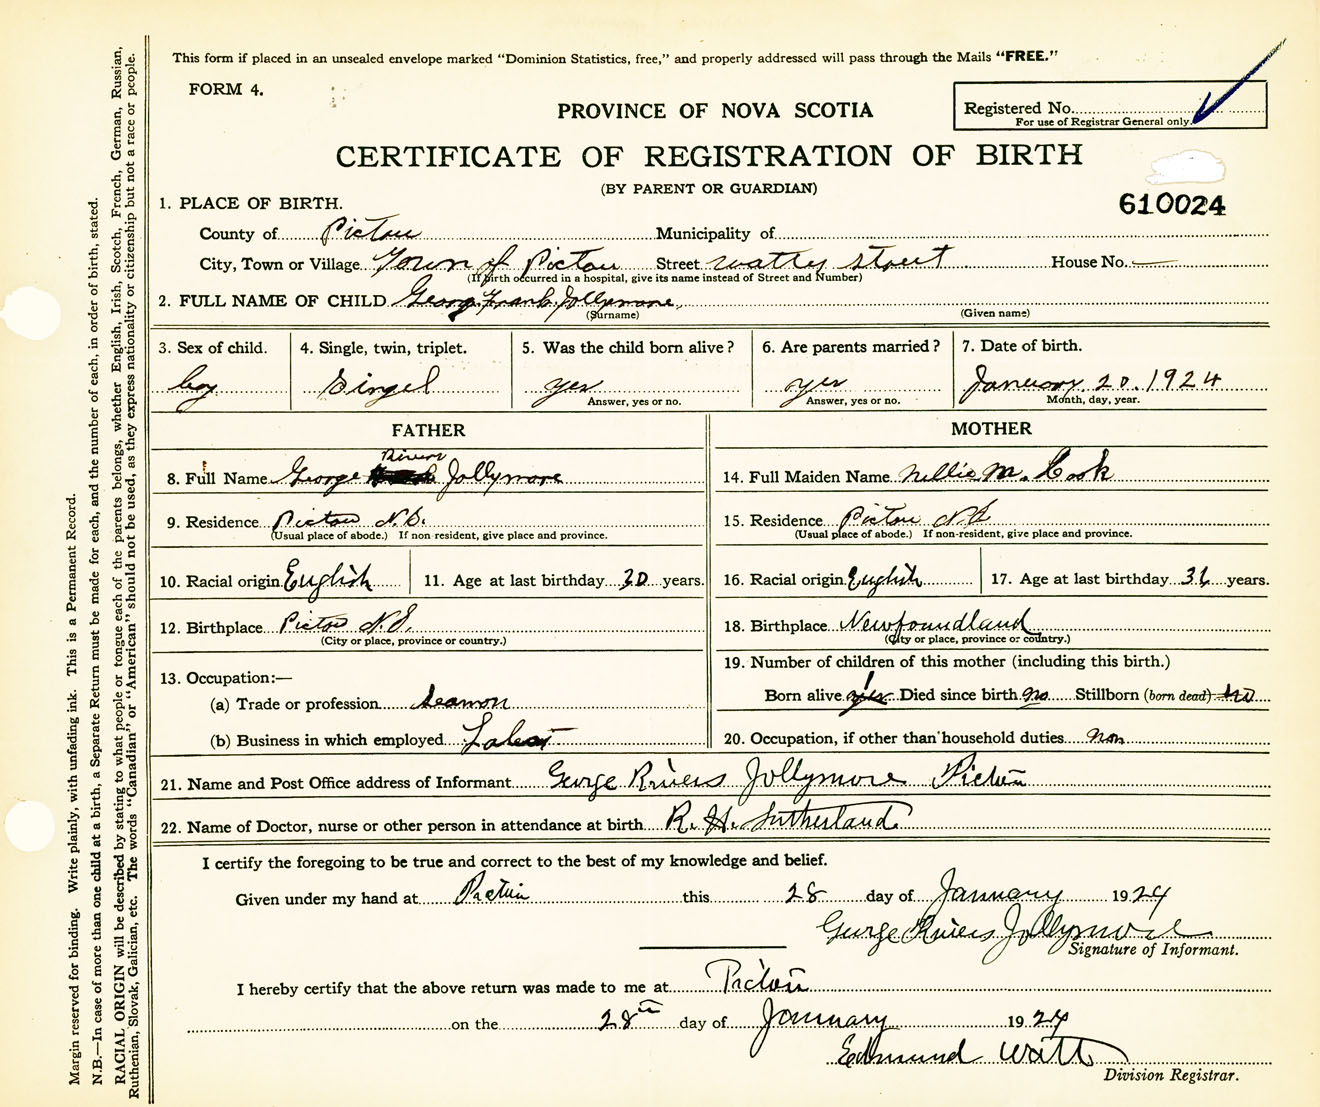 This form if placed in an unsealed envelope marked “Dominion Statistics, free,” and properly addressed will pass through the Mails “FREE.”
FORM 4.
PROVINCE OF NOVA SCOTIA
Registered No.
For use of Registrar General only.
CERTIFICATE OF REGISTRATION OF BIRTH
(BY PARENT OR GUARDIAN)
610024
1. PLACE OF BIRTH.
County of Pictou Municipality of
City, Town or Village Town of Pictou Street wattry street House No. —
(If birth occurred in a hospital, give its name instead of Street and Number)
2. FULL NAME OF CHILD George Frank Jollymore,
(Surname) (Given name)
3. Sex of child. 4. Single, twin, triplet. 5. Was the child born alive? 6. Are parents married? 7. Date of birth.
boy Singel yes yes January 20. 1924
Answer, yes or no. Answer, yes or no. Month, day, year.
FATHER MOTHER
8. Full Name George Rivers Jollymore 14. Full Maiden Name Nellie M. Cook
9. Residence Pictou N.S. 15. Residence Pictou N.S
(Usual place of abode.) If non-resident, give place and province. (Usual place of abode.) If non-resident, give place and province.
10. Racial origin English 11. Age at last birthday 30 years. 16. Racial origin English 17. Age at last birthday years.
12. Birthplace Pictou N.S. 18. Birthplace Newfoundland
(City or place, province or country.) (City or place, province or country.)
19. Number of children of this mother (including this birth.)
13. Occupation:—
Born alive 1 yes Died since birth no Stillborn (born dead) no
(a) Trade or profession Seamon
(b) Business in which employed 20. Occupation, if other than household duties non
21. Name and Post Office address of Informant George Rivers Jollymore Pictou
22. Name of Doctor, nurse or other person in attendance at birth R. H. Sutherland
I certify the foregoing to be true and correct to the best of my knowledge and belief.
Given under my hand at Pictou this 28 day of January 1924
George Rivers Jollymore
Signature of Informant.
I hereby certify that the above return was made to me at Pictou
on the 28th day of January 1924
Edmund Watt
Division Registrar.
Margin reserved for binding. Write plainly, with unfading ink. This is a Permanent Record.
N.B.—In case of more than one child at a birth, a Separate Return must be made for each, and the number of each, in order of birth, stated.
RACIAL ORIGIN will be described by stating to what people or tongue each of the parents belongs, whether English, Irish, Scotch, French, German, Russian,
Ruthenian, Slovak, Galician, etc. The words “Canadian” or “American” should not be used, as they express nationality or citizenship but not a race or people.